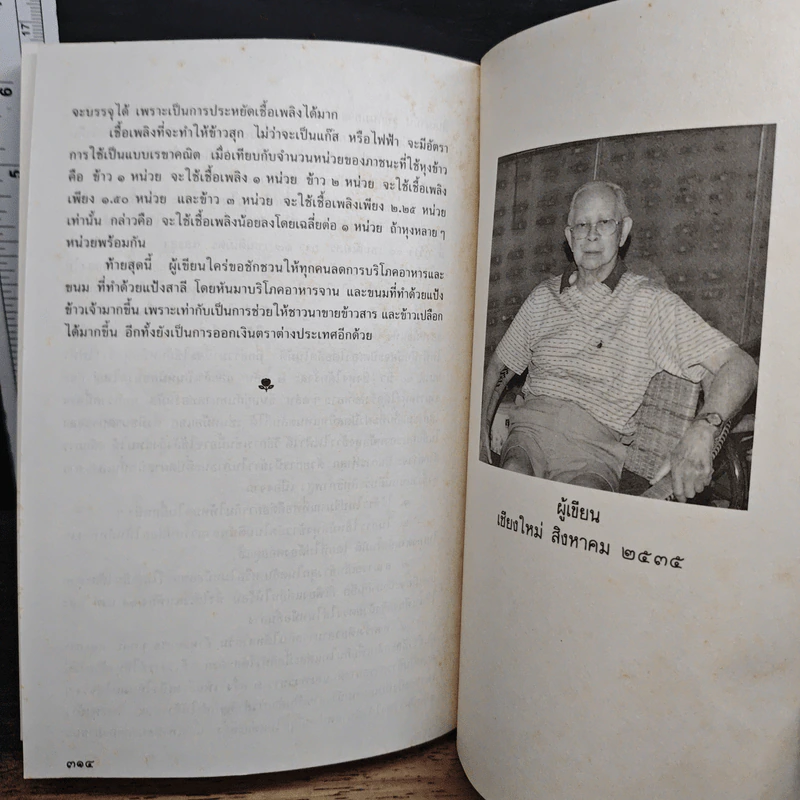 17
6
5
จะบรรจุได้ เพราะเป็นการประหยัดเชื้อเพลิงได้มาก
เชื้อเพลิงที่จะทำให้ข้าวสุก ไม่ว่าจะเป็นแก๊ส หรือไฟฟ้า จะมีอัตรา
การใช้เป็นแบบเรขาคณิต เมื่อเทียบกับจำนวนหน่วยของภาชนะที่ใช้หุงข้าว
คือ ข้าว ๑ หน่วย จะใช้เชื้อเพลิง ๑ หน่วย ข้าว ๒ หน่วย จะใช้เชื้อเพลิง
เพียง ๑.๕๐ หน่วย และข้าว ๓ หน่วย จะใช้เชื้อเพลิงเพียง ๒.๒๕ หน่วย
เท่านั้น กล่าวคือ จะใช้เชื้อเพลิงน้อยลงโดยเฉลี่ยต่อ ๑ หน่วย ถ้าหุงหลาย ๆ
หน่วยพร้อมกัน
ท้ายสุดนี้ ผู้เขียนใคร่ขอชักชวนให้ทุกคนลดการบริโภคอาหารและ
ขนม ที่ทำด้วยแป้งสาลี โดยหันมาบริโภคอาหารจาน และขนมที่ทำด้วยแป้ง
ข้าวเจ้ามากขึ้น เพราะเท่ากับเป็นการช่วยให้ชาวนาขายข้าวสาร และข้าวเปลือก
ได้มากขึ้น อีกทั้งยังเป็นการออกเงินตราต่างประเทศอีกด้วย
๓๑๔
ผู้เขียน
เชียงใหม่ สิงหาคม ๒๕๓๕